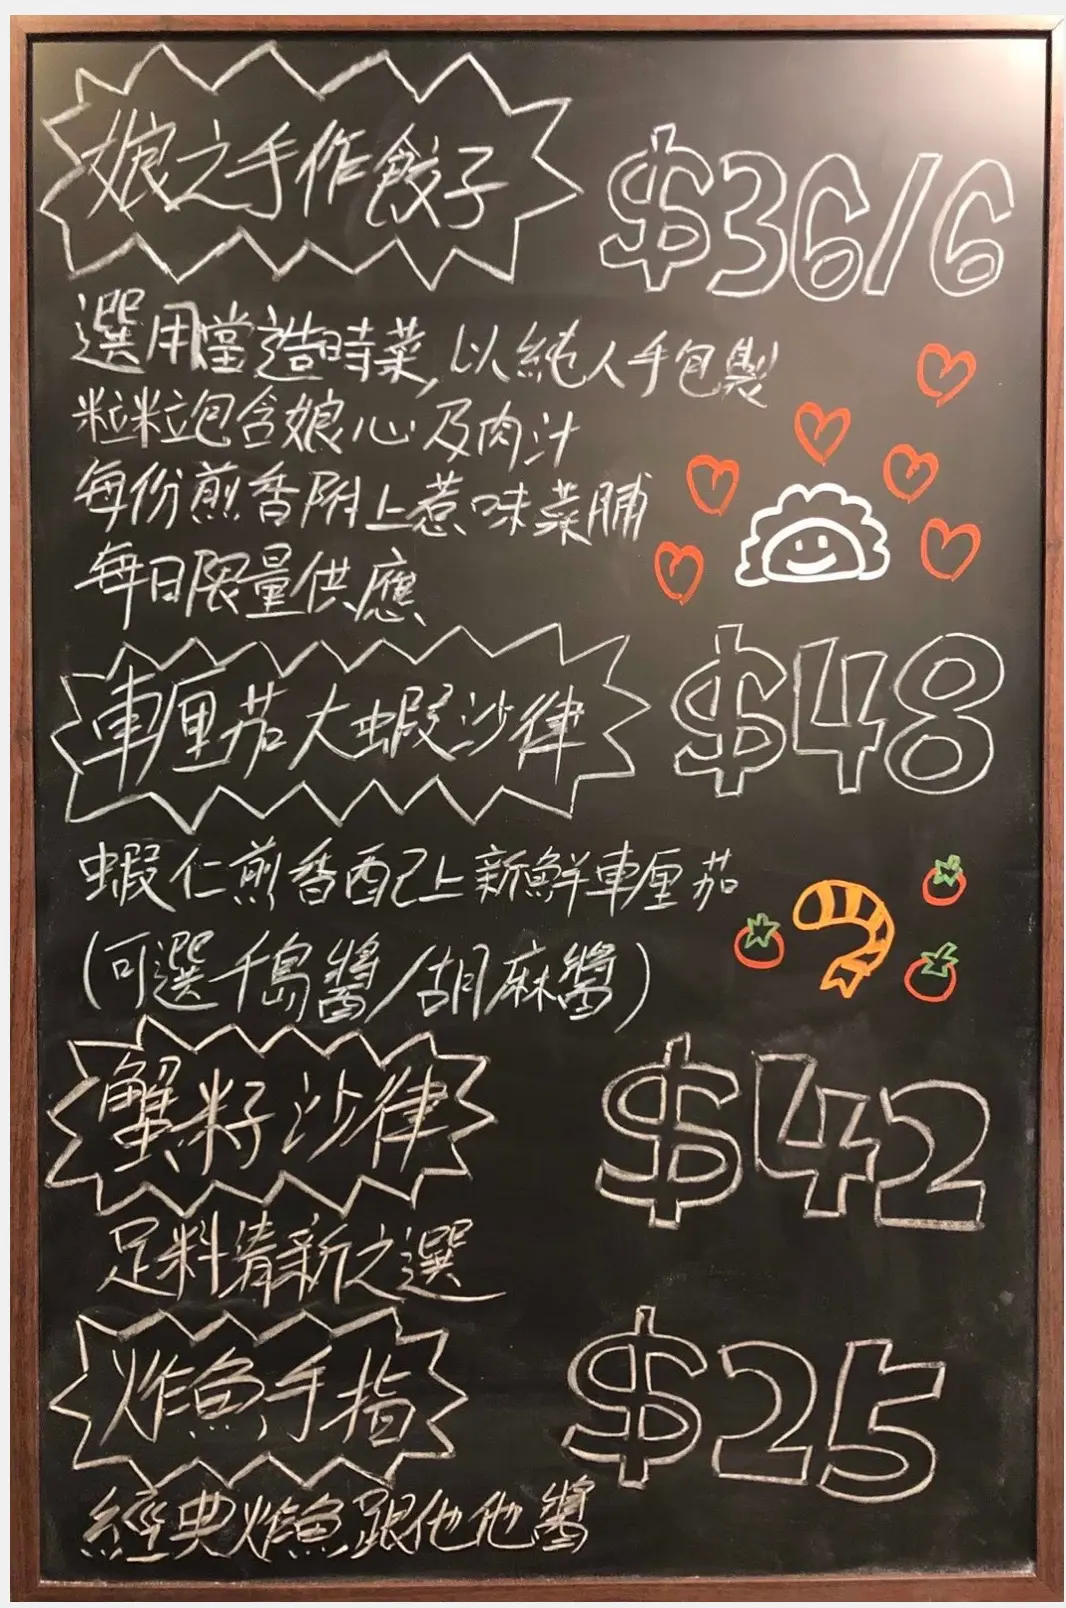 娘之手作餃子
$36/6
選用當造時菜,以純人手包製
粒粒包含娘心及肉汁
每份煎香附上惹味菜脯
每日限量供應
車厘茄大蝦沙律
$48
蝦仁煎香配上新鮮車厘茄
(可選千島醬/胡麻醬)
蟹籽沙律
$42
足料清新之選
炸魚手指
$25
經典炸魚跟他他醬